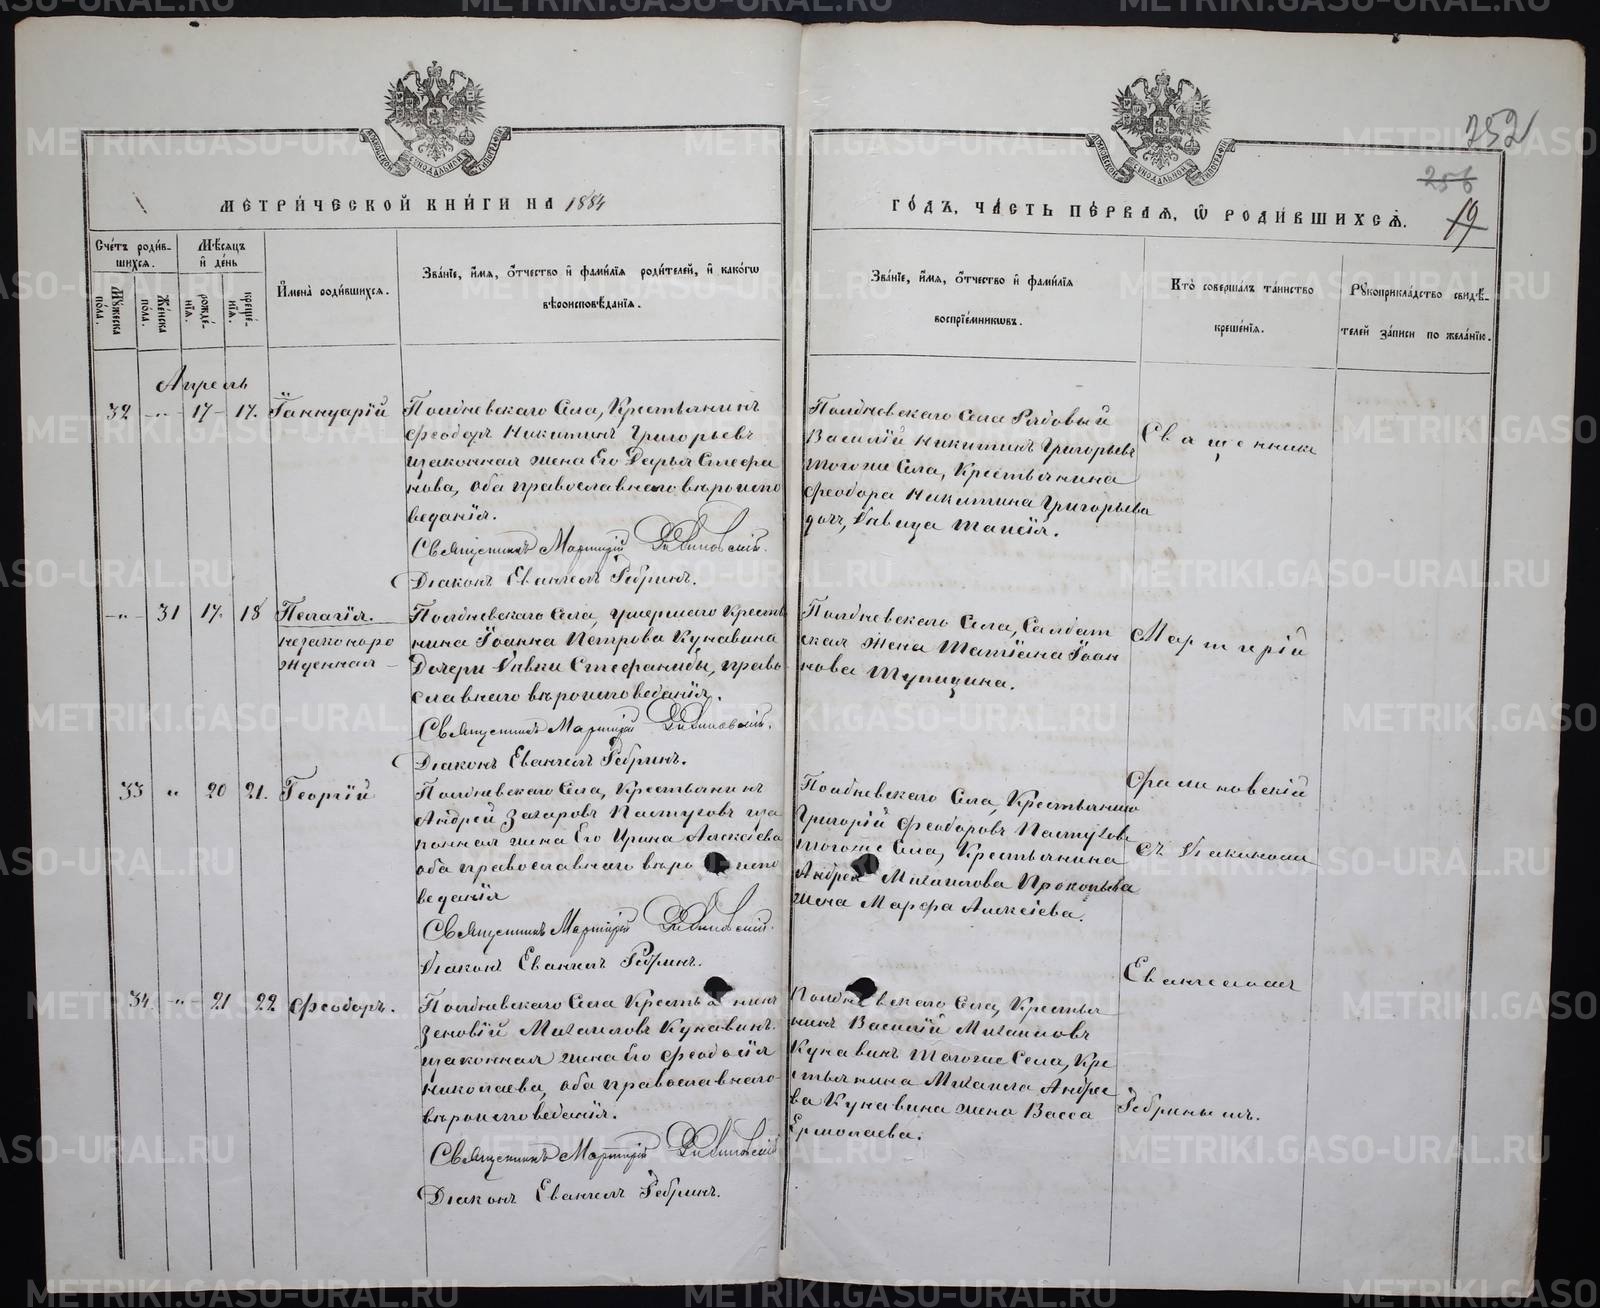 252
256
19
МОСКОВСКОЙ СѴНОДАЛЬНОЙ ТИПОГРАФІИ
МОСКОВСКОЙ СѴНОДАЛЬНОЙ ТИПОГРАФІИ
МЕТРИ́ЧЕСКОЙ КНИ́ГИ НА 1884
ГО́ДЪ, ЧА́СТЬ ПЕ́РВАЯ, Ѡ҆ РОДИ́ВШИХСѦ.
Сче́тъ роди́в-
шихся.
Му́жеска
пола.
Же́нска
пола.
Мѣ́сяцъ
и҆ де́нь
рожде́-
нїя.
креще́-
нїя.
И҆мена̀ роди́вшихся.
Зва́нїе, и҆́мя, ѻ҆́тчество и҆ фами́лїя роди́телей, и҆ како́гѡ
вѣроисповѣ́данїя.
Зва́нїе, и҆́мя, ѻ҆́тчество и҆ фами́лїя
воспрїе́мникѡвъ.
Кто̀ соверша́лъ та́инство
креще́нїя.
Рꙋкоприкла́дство свидѣ́-
телей за́писи по жела́нїю.
Апрель
32 -„- 17- 17. Їаннуарій
Полдневскаго Села, Крестьянинъ
Феодоръ Никитинъ Григорьевъ
и законная жена Его Дарья Стефа
нова, оба православнаго вѣроиспо
веданія.
Священникъ Мартирій
Діаконъ Евангелъ Ребринъ.
Полдневскаго Села Рядовый
Василій Никитинъ Григорьевъ
тогоже Села, Крестьянина
Феодора Никитина Григорьева
доч, дѣвица Таисія.
-„- 31 17. 18 Пелагія.
незаконоро
жденная -
Полдневскаго Села, умершаго Крестья
нина Їоанна Петрова Кунавина
Дочери Дѣвки Стефаниды, право-
славнаго вѣроисповеданія.
Священникъ Мартирій
Діаконъ Евангелъ Ребринъ.
Полдневскаго Села, Солдат
ская Жена Татіана Їоан
нова Тупицина.
33 „ 20 21. Георгій
Полдневскаго Села, Крестьянинъ
Андрей Захаровъ Пастуховъ и за
конная жена Его Ирина Алексіева
оба православнаго вѣроиспо
веданія
Священникъ Мартирій
Діаконъ Евангелъ Ребринъ.
Полдневскаго Села, Крестьянинъ
Григорій Феодоровъ Пастуховъ
тогоже Села, Крестьянина
Андрея Михаилова Прокопьева
жена Марфа Алексіева.
34. -„- 21 22 Феодоръ.
Полдневскаго Села Крестьянинъ
Зеновій Михаиловъ Кунавинъ
и законная жена Его Феодосія
Николаева, оба православнаго
вѣроисповеданія.
Священникъ Мартирій
Діаконъ Евангелъ Ребринъ.
Полдневскаго Села, Крестья
нинъ Василій Михаиловъ
Кунавинъ тогоже Села, Кре
стьянина Михаила Андрее
ва Кунавина жена Васса
Ермолаева.
Священникъ
Мартирій
съ Діакономъ
Евангеломъ
Ребринымъ.
METRIKI.GASO-URAL.RU